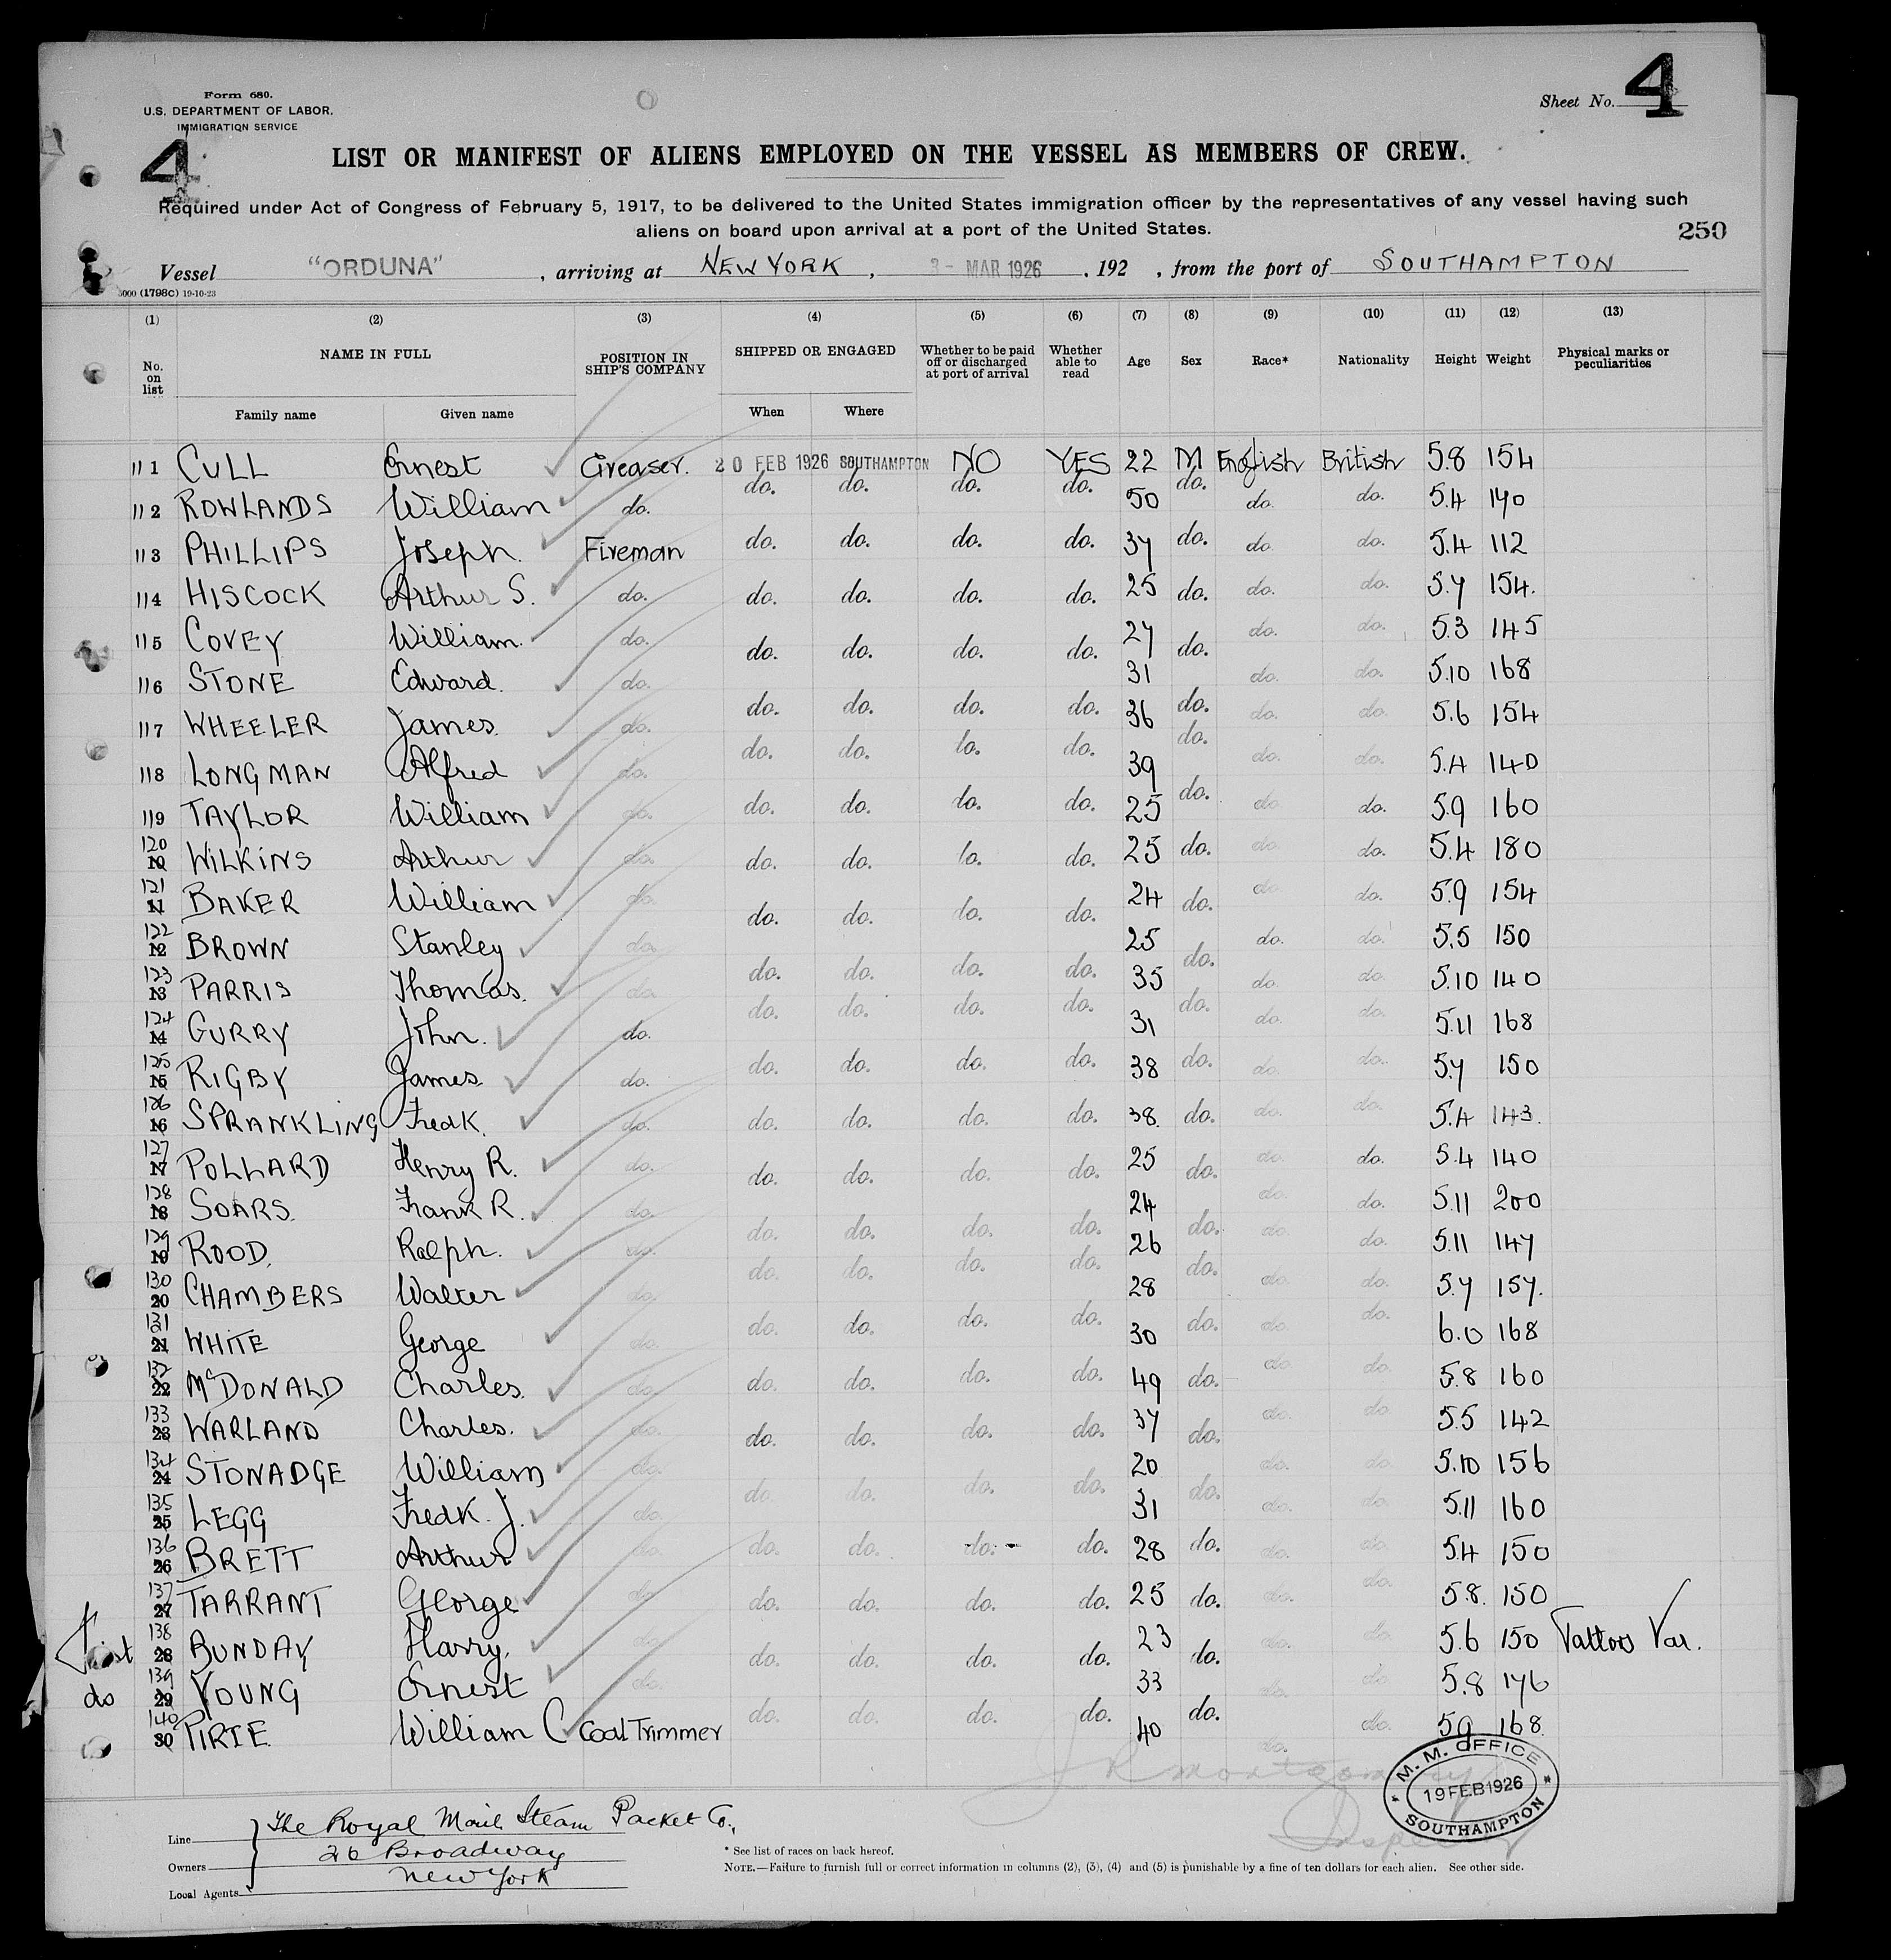 Form 680.
U.S. DEPARTMENT OF LABOR.
IMMIGRATION SERVICE
Sheet No. 4
4
LIST OR MANIFEST OF ALIENS EMPLOYED ON THE VESSEL AS MEMBERS OF CREW.
Required under Act of Congress of February 5, 1917, to be delivered to the United States immigration officer by the representatives of any vessel having such
aliens on board upon arrival at a port of the United States.
250
Vessel "ORDUNA", arriving at NEW YORK, 3- MAR 1926, 192 , from the port of SOUTHAMPTON
5000 (1798C) 19-10-23
(1) (2) (3) (4) (5) (6) (7) (8) (9) (10) (11) (12) (13)
No. on list NAME IN FULL POSITION IN SHIP'S COMPANY SHIPPED OR ENGAGED Whether to be paid off or discharged at port of arrival Whether able to read Age Sex Race* Nationality Height Weight Physical marks or peculiarities
Family name Given name When Where
111 CULL Ernest Greaser. 20 FEB 1926 SOUTHAMPTON NO YES 22 M English British 5.8 154
112 ROWLANDS William do. do. do. do. do. 50 do. do. do. 5.4 140
113 PHILLIPS Joseph. Fireman do. do. do. do. 37 do. do. do. 5.4 112
114 HISCOCK Arthur S. do. do. do. do. do. 25 do. do. do. 5.7 154.
115 COVEY William. do. do. do. do. do. 27 do. do. do. 5.3 145
116 STONE Edward. do. 31 do. do. 5.10 168
117 WHEELER James. do. do. do. do. do. 36 do. do. do. 5.6 154
118 LONGMAN Alfred do. do. do. do. do. 39 do. do. do. 5.4 140
119 TAYLOR William do. do. do. do. do. 25 do. do. do. 5.9 160
120 10 WILKINS Arthur do. do. do. do. do. 25 do. do. do. 5.4 180
121 11 BAKER William do. do. do. do. do. 24 do. do. do. 5.9 154
122 12 BROWN Stanley do. 25 do. do. 5.5 150
123 13 PARRIS Thomas. do. do. do. do. do. 35 do. do. do. 5.10 140
124 14 GURRY John. do. do. do. do. do. 31 do. do. do. 5.11 168
125 15 RIGBY James do. do. do. do. do. 38 do. do. do. 5.7 150
126 16 SPRANKLING Fredk. do. do. do. do. do. 38. do. do. do. 5.4 143.
127 17 POLLARD Henry R. do. do. do. do. do. 25 do. do. do. 5.4 140
128 18 SOARS. Frank R. do. 24 do. do. 5.11 200
129 19 ROOD. Ralph. do. do. do. do. do. 26 do. do. do. 5.11 147
130 20 CHAMBERS Walter do. do. do. do. do. 28 do. do. do. 5.7 157.
131 21 WHITE George do. do. do. do. do. 30 do. do. do. 6.0 168
132 22 McDONALD Charles. do. do. do. do. do. 49 do. do. do. 5.8 160
133 23 WARLAND Charles. do. do. do. do. do. 37 do. do. do. 5.5 142
134 24 STONADGE William do. 20 do. do. 5.10 156
135 25 LEGG Fredk. J. do. do. do. do. do. 31 do. do. do. 5.11 160
136 26 BRETT Arthur do. do. do. do. do. 28 do. do. do. 5.4 150
137 27 TARRANT George do. do. do. do. do. 25 do. do. do. 5.8. 150
First 138 28 BUNDAY Harry. do. do. do. do. do. 23 do. do. do. 5.6 150 Tattoos Var.
do 139 29 YOUNG Ernest do. 33 do. do. 5.8 176
140 30 PIRIE. William C Coal Trimmer do. do. do. do. 40 do. do. do. 5.9 168.
J R Montgomery
Inspector
M. M. OFFICE
19 FEB 1926
SOUTHAMPTON
Line The Royal Mail Steam Packet Co.,
Owners 26 Broadway
Local Agents New York
* See list of races on back hereof.
NOTE.—Failure to furnish full or correct information in columns (2), (3), (4) and (5) is punishable by a fine of ten dollars for each alien. See other side.